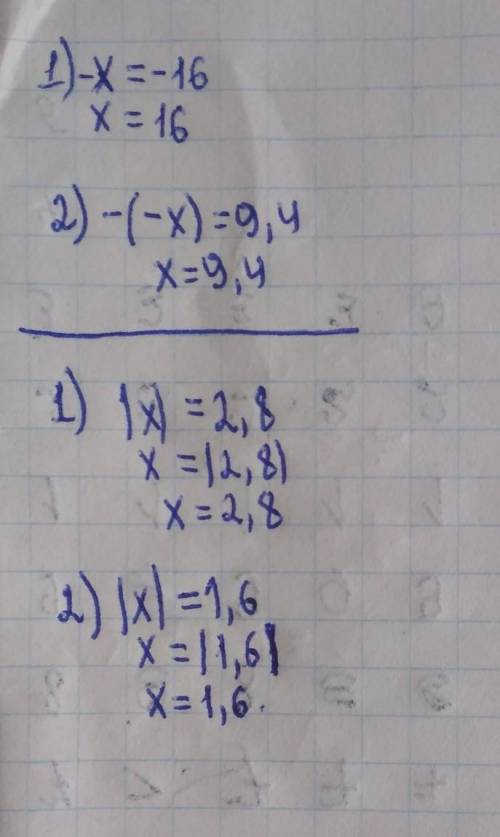 1) -x = -16
x = 16
2) -(-x) = 9,4
x = 9,4
1) |x| = 2,8
x = |2,8|
x = 2,8
2) |x| = 1,6
x = |1,6|
x = 1,6.